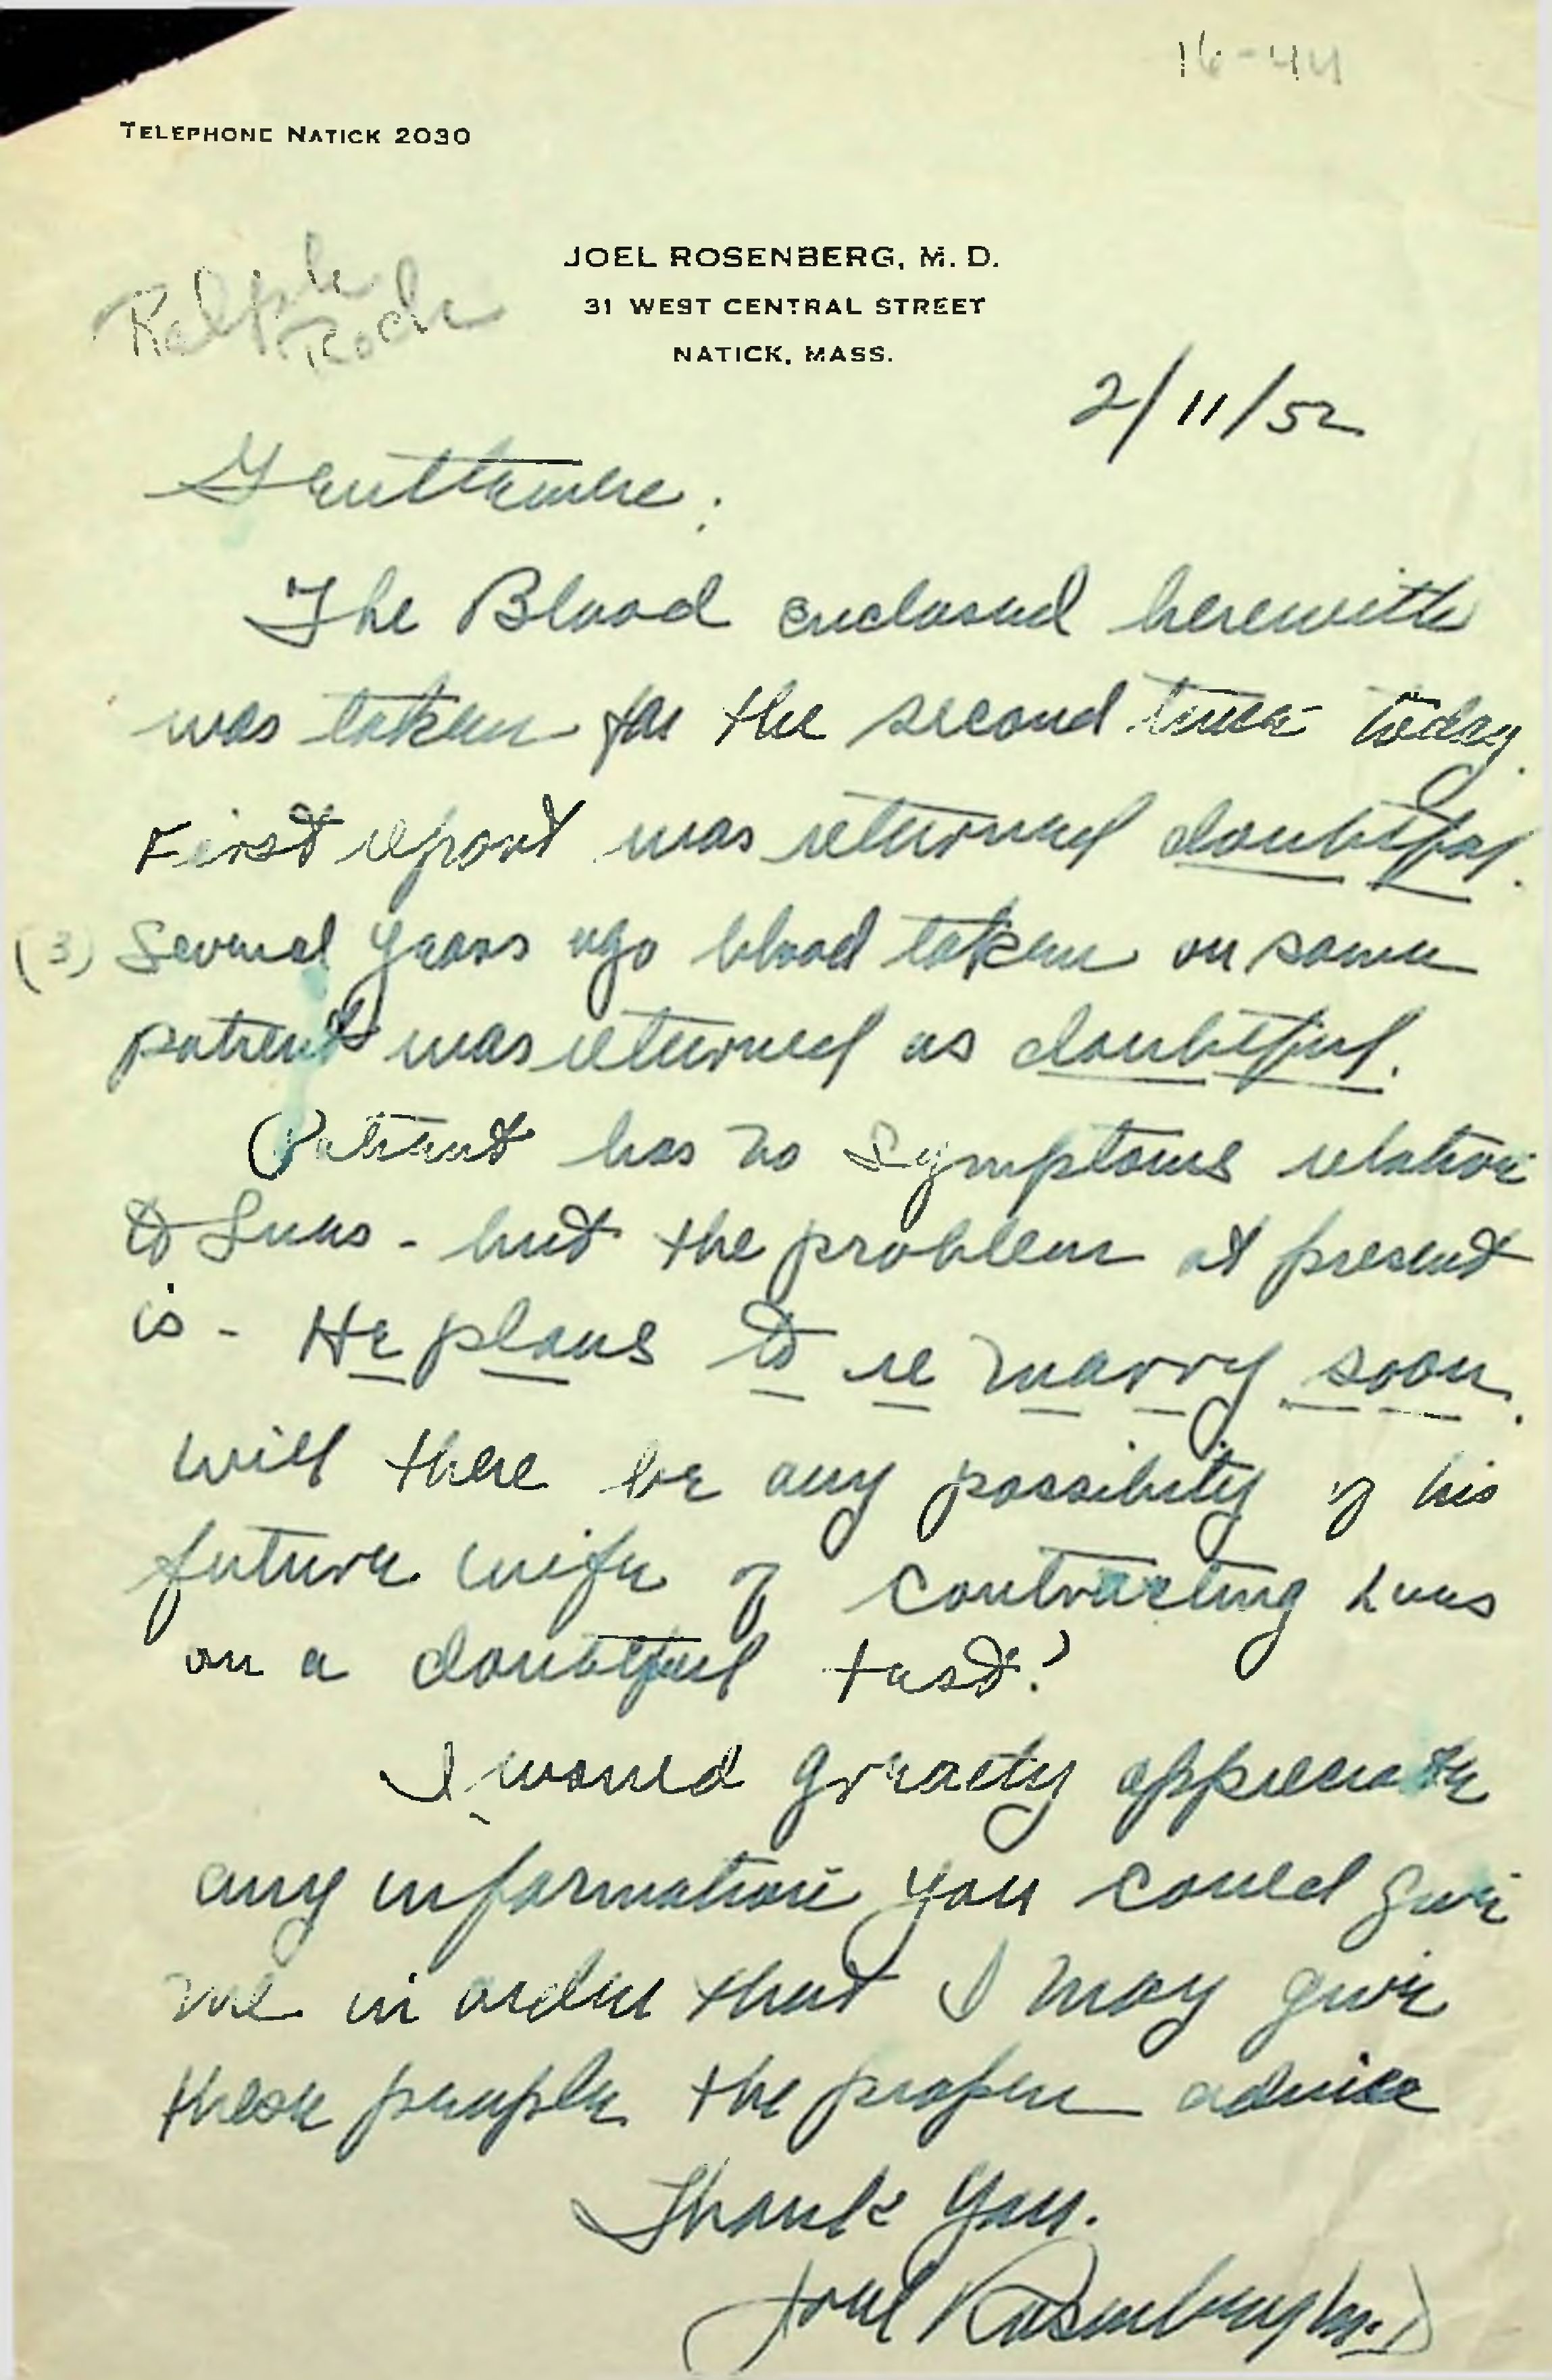 16-44
TELEPHONE NATICK 2030
JOEL ROSENBERG, M. D.
31 WEST CENTRAL STREET
NATICK, MASS.
Ralph
2/11/52
Gentlemen:
The Blood enclosed herewith
was taken for the second time today.
First report was returned doubtful.
(3) Several years ago blood taken on same
patient was returned as doubtful.
Patient has no symptoms relative
to Lues - but the problem at present
is - He plans to re marry soon.
Will there be any possibility of his
future wife of contracting Lues
on a doubtful test?
I would greatly appreciate
any information you could give
me in order that I may give
these people the proper advice
Thank You.
Joel Rosenberg M.D